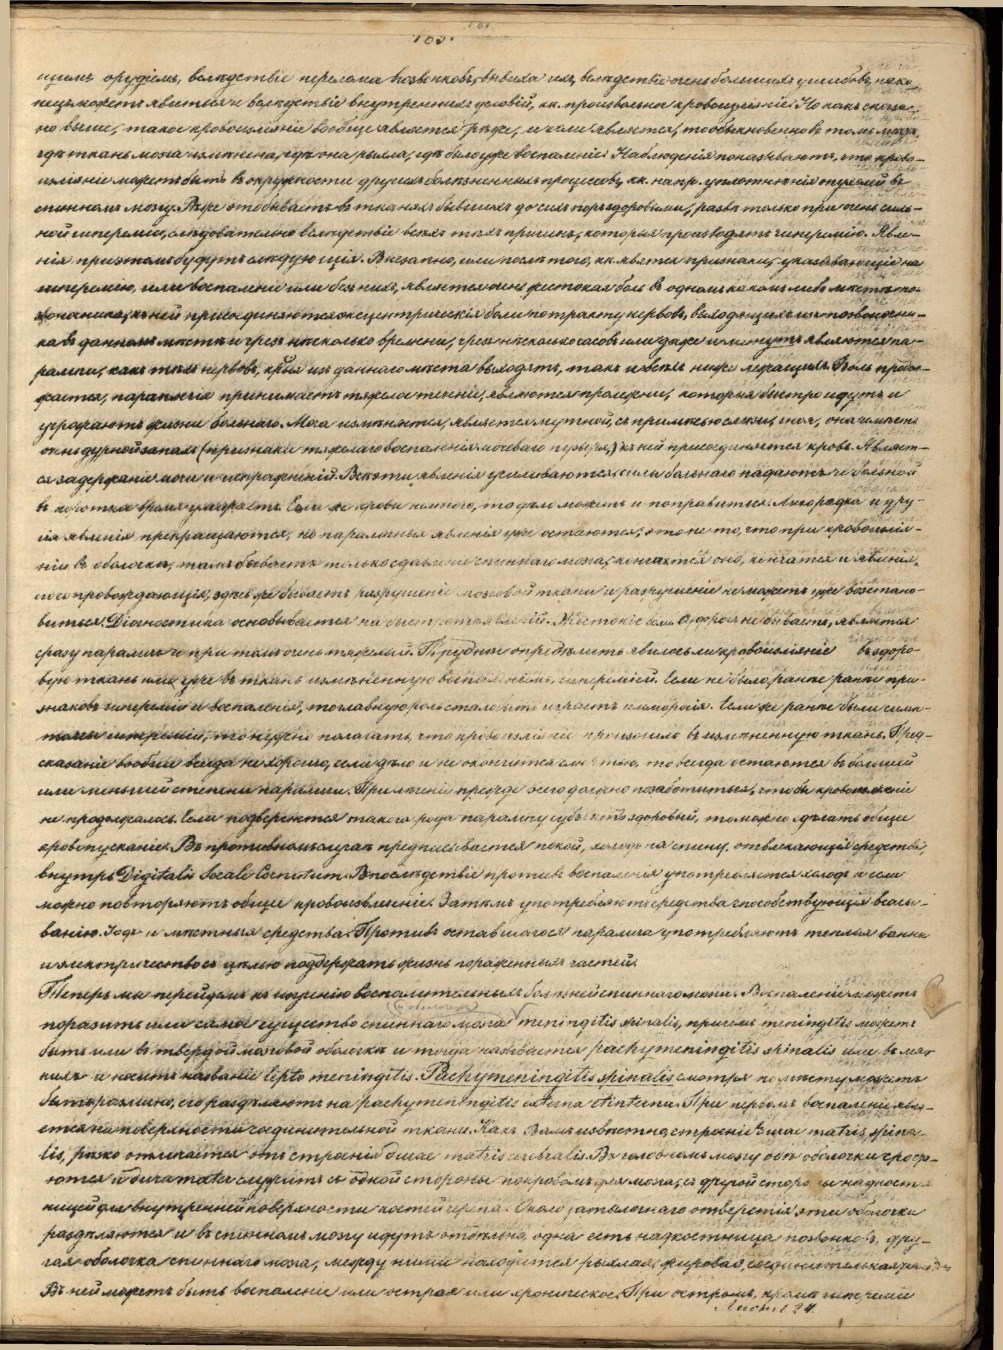 102.
щимъ орудіемъ, вслѣдствіе перелома позвонковъ, вывиха ихъ, вслѣдствіе очень большихъ ушибовъ, нако-
нецъ можетъ явиться и вслѣдствіе внутреннихъ условій, кк. произвольное кровоизліяніе. Но какъ сказа-
но выше, такое кровоизліяніе вообще является рѣже, и если является, то обыкновенно въ томъ мозгу,
гдѣ ткань мозга измѣнена, гдѣ она рыхла, гдѣ было уже воспаленіе. Наблюденія показываютъ, что крово-
изліяніе можетъ быть въ окружности другихъ болѣзненныхъ процессовъ, кк. напр. уплотнѣнія опухолей въ
спинномъ мозгу. Рѣже это бываетъ въ тканяхъ бывшихъ до сихъ поръ здоровыми, развѣ только при очень силь-
ной гипереміи, слѣдовательно вслѣдствіе всѣхъ тѣхъ причинъ, которыя производятъ гиперемію. Явле-
нія при этомъ будутъ слѣдующія. Внезапно, или послѣ того, кк. явятся признаки, указывающіе на
гиперемію, или воспаленіе или безъ нихъ, является очень жестокая боль въ одномъ какомъ либо мѣстѣ по-
звоночника, къ ней присоединяются эксцентрическія боли по тракту нервовъ, выходящихъ изъ позвоночни-
ка въ данномъ мѣстѣ и чрезъ нѣсколько времени, чрезъ нѣсколько часовъ или даже и минутъ являются па-
раличи, какъ тѣхъ нервовъ, крые изъ даннаго мѣста выходятъ, такъ и всѣхъ ниже лежащихъ. Боль продол-
жается, параплегія принимаетъ тяжелое теченіе, являются пролежни, которые быстро идутъ и
угрожаютъ жизни больнаго. Моча измѣняется, является мутной, съ примѣсью слизи, гноя, она имѣетъ
очень дурной запахъ (признаки тяжелаго воспаленія мочеваго пузыря,) къ ней присоединяется кровь. Являет-
ся задержаніе мочи и испражненій. Всѣ эти явленія усиливаются, силы больнаго падаютъ и больной
въ короткое время умираетъ. Если же крови немного, то дѣло можетъ и поправиться. Лихорадка и дру-
гія явленія прекращаются, но параличныя явленія уже остаются, это не то, что при кровоизлія-
ніи въ оболочки, тамъ бываетъ только сдавленіе спиннаго мозга, кончается оно, кончатся и явленія,
его сопровождающія, здѣсь же бываетъ разрушеніе мозговой ткани и разрушеніе не можетъ уже возстано-
виться. Діагностика основывается на быстротѣ явленій. Жестокіе боли, судорогъ не бываетъ, является
сразу параличъ и при томъ очень тяжелый. Труднѣе опредѣлить явилось ли кровоизліяніе въ здоро-
вую ткань или уже въ ткань измѣненную воспаленіемъ, гипереміей. Если не было ранѣе ранѣе при-
знаковъ гипереміи и воспаленія, то главную роль стало быть играетъ геморрагія. Если же ранѣе были симп-
томы гипереміи, то нужно полагать, что кровоизліяніе произошло въ измѣненную ткань. Пред-
сказаніе вообще всегда не хорошо, если дѣло и не окончится смертью, то всегда остаются въ большей
или меньшей степени параличи. При леченіи прежде всего должно позаботиться, чтобы кровоизліяніе
не продолжалось. Если подвергнется такого рода параличу субъектъ здоровый, то можно сдѣлать общее
кровопусканіе. Въ противномъ случаѣ предписывается покой, холодъ на спину, отвлекающія средства,
внутрь Digitalis Secale Cornutum. Впослѣдствіе противъ воспаленія употребляется холодъ и если
можно повторяютъ общее кровоизвлеченіе. Затѣмъ употребляютъ средства способствующія всасы-
ванію. Іодъ и мѣстныя средства. Противъ оставшагося паралича употребляютъ теплыя ванны
и электричество съ цѣлью поддержать жизнь пораженныхъ частей.
Теперь мы перейдемъ къ изученію воспалительныхъ болѣзней спиннаго мозга. Воспаленіе можетъ
поразить или самое существо спиннаго мозга meningitis spinalis, причемъ meningitis можетъ
быть или въ твердой мозговой оболочкѣ и тогда называется pachymeningitis spinalis или въ мяг-
кихъ и носитъ названіе lepto meningitis. Pachymeningitis spinalis смотря по мѣсту можетъ
быть различно, его раздѣляютъ на pachymeningitis externa et interna. При первомъ воспаленіе явля-
ется на поверхности соединительной ткани. Какъ Вамъ извѣстно, строеніе durae matris spina-
lis, рѣзко отличается отъ строенія durae matris cerebralis. Въ головномъ мозгу обѣ оболочки сроста-
ются и dura mater служитъ съ одной стороны покровомъ для мозга, съ другой стороны надкост-
ницей для внутренней поверхности костей черепа. Около затылочнаго отверстія эти оболочки
раздѣляются и въ спинномъ мозгу идутъ отдѣльно, одна есть надкостница позвонковъ, дру-
гая оболочка спиннаго мозга, между ними находится рыхлая, жировая, соединительная ткань.
Въ ней можетъ быть воспаленіе или острое или хроническое. При остромъ, кромѣ гипереміи
Листъ 24